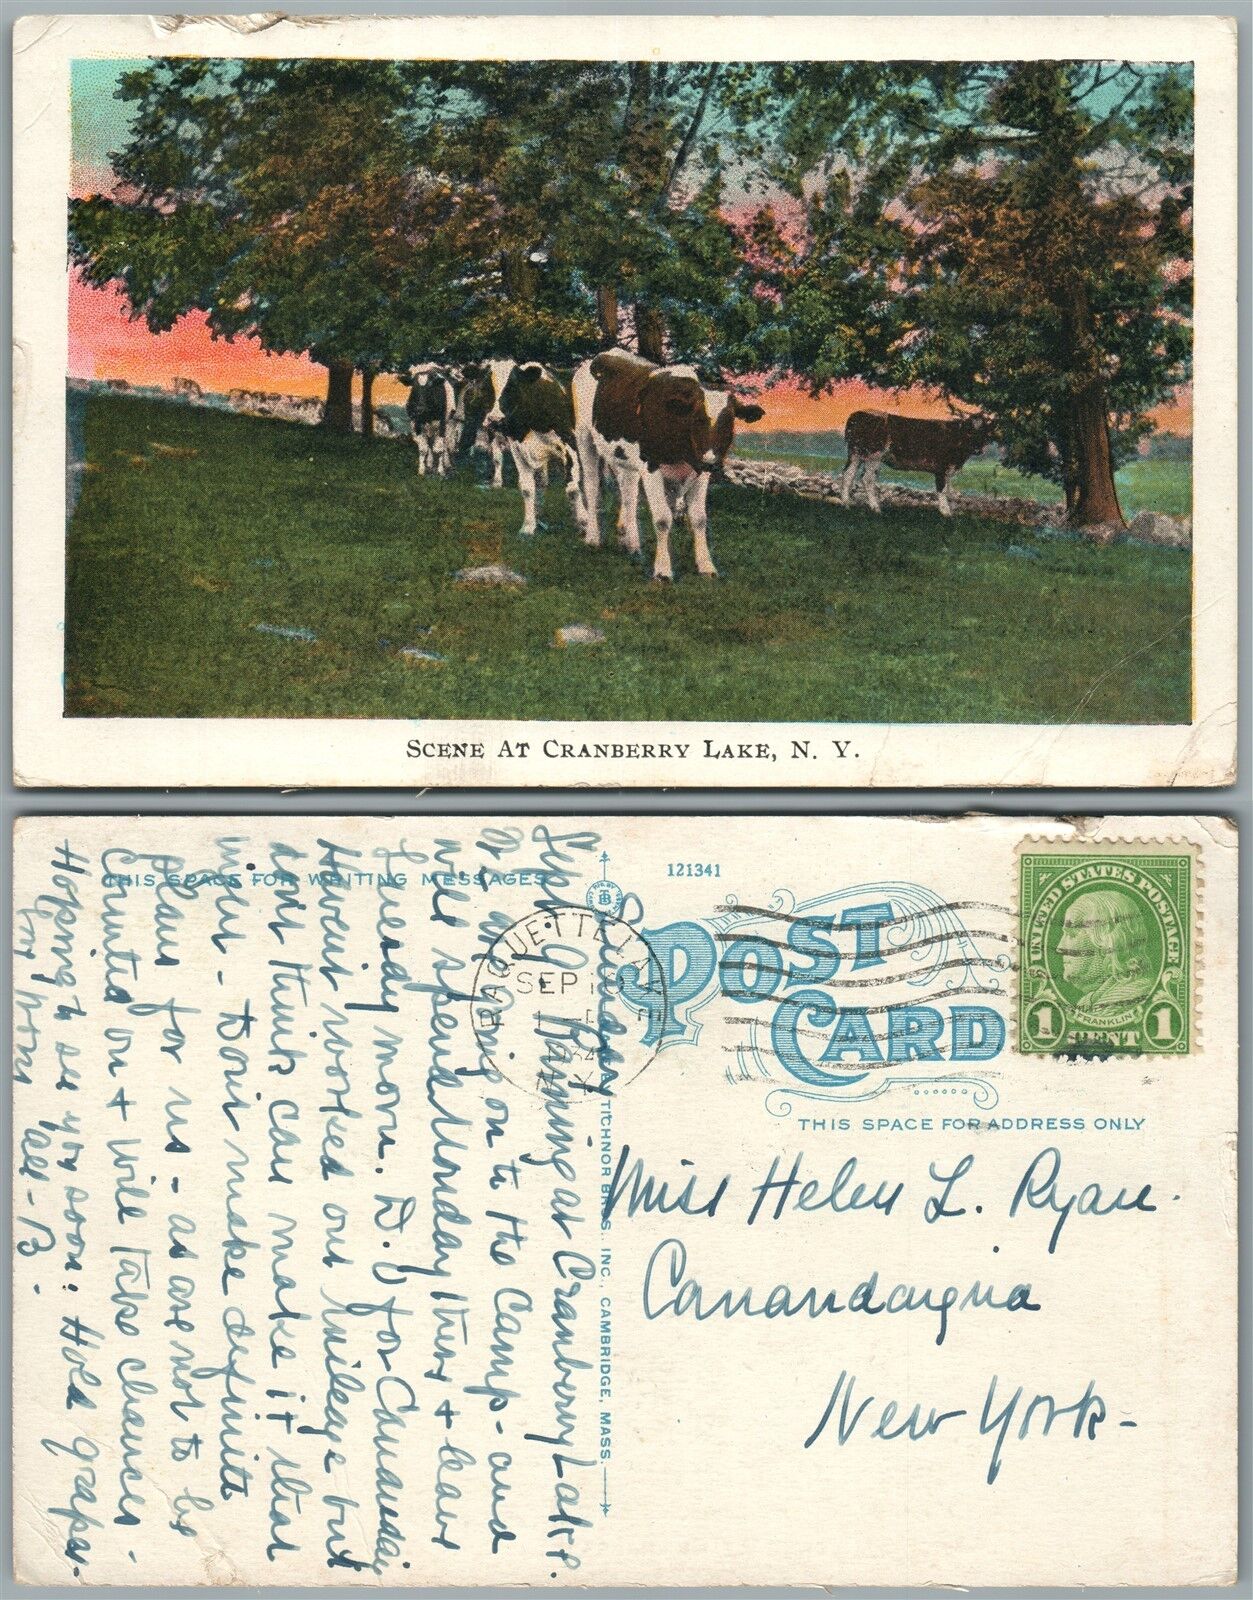 SCENE AT CRANBERRY LAKE, N. Y.
THIS SPACE FOR WRITING MESSAGES
121341
POST
CARD
THIS SPACE FOR ADDRESS ONLY
UNITED STATES POSTAGE
FRANKLIN
1 CENT 1
RAQUETTE LA
SEP 10
1934
N.Y.
TICHNOR BROS., INC., CAMBRIDGE, MASS.
Sunday
Sept. 9. at Cranberry Lake.
or - are going on to the Camp - and
will spend Monday there + leave
Tuesday morn. D.V for Canandaig
Haven't worked out mileage but
don't think can make it that
night - Don't make definite
plans for us - as are not to be
counted on + will take chances -
Hoping to see you soon. Hold grapes
for .. all - B.
Miss Helen L. Ryan.
Canandaigua
New York -